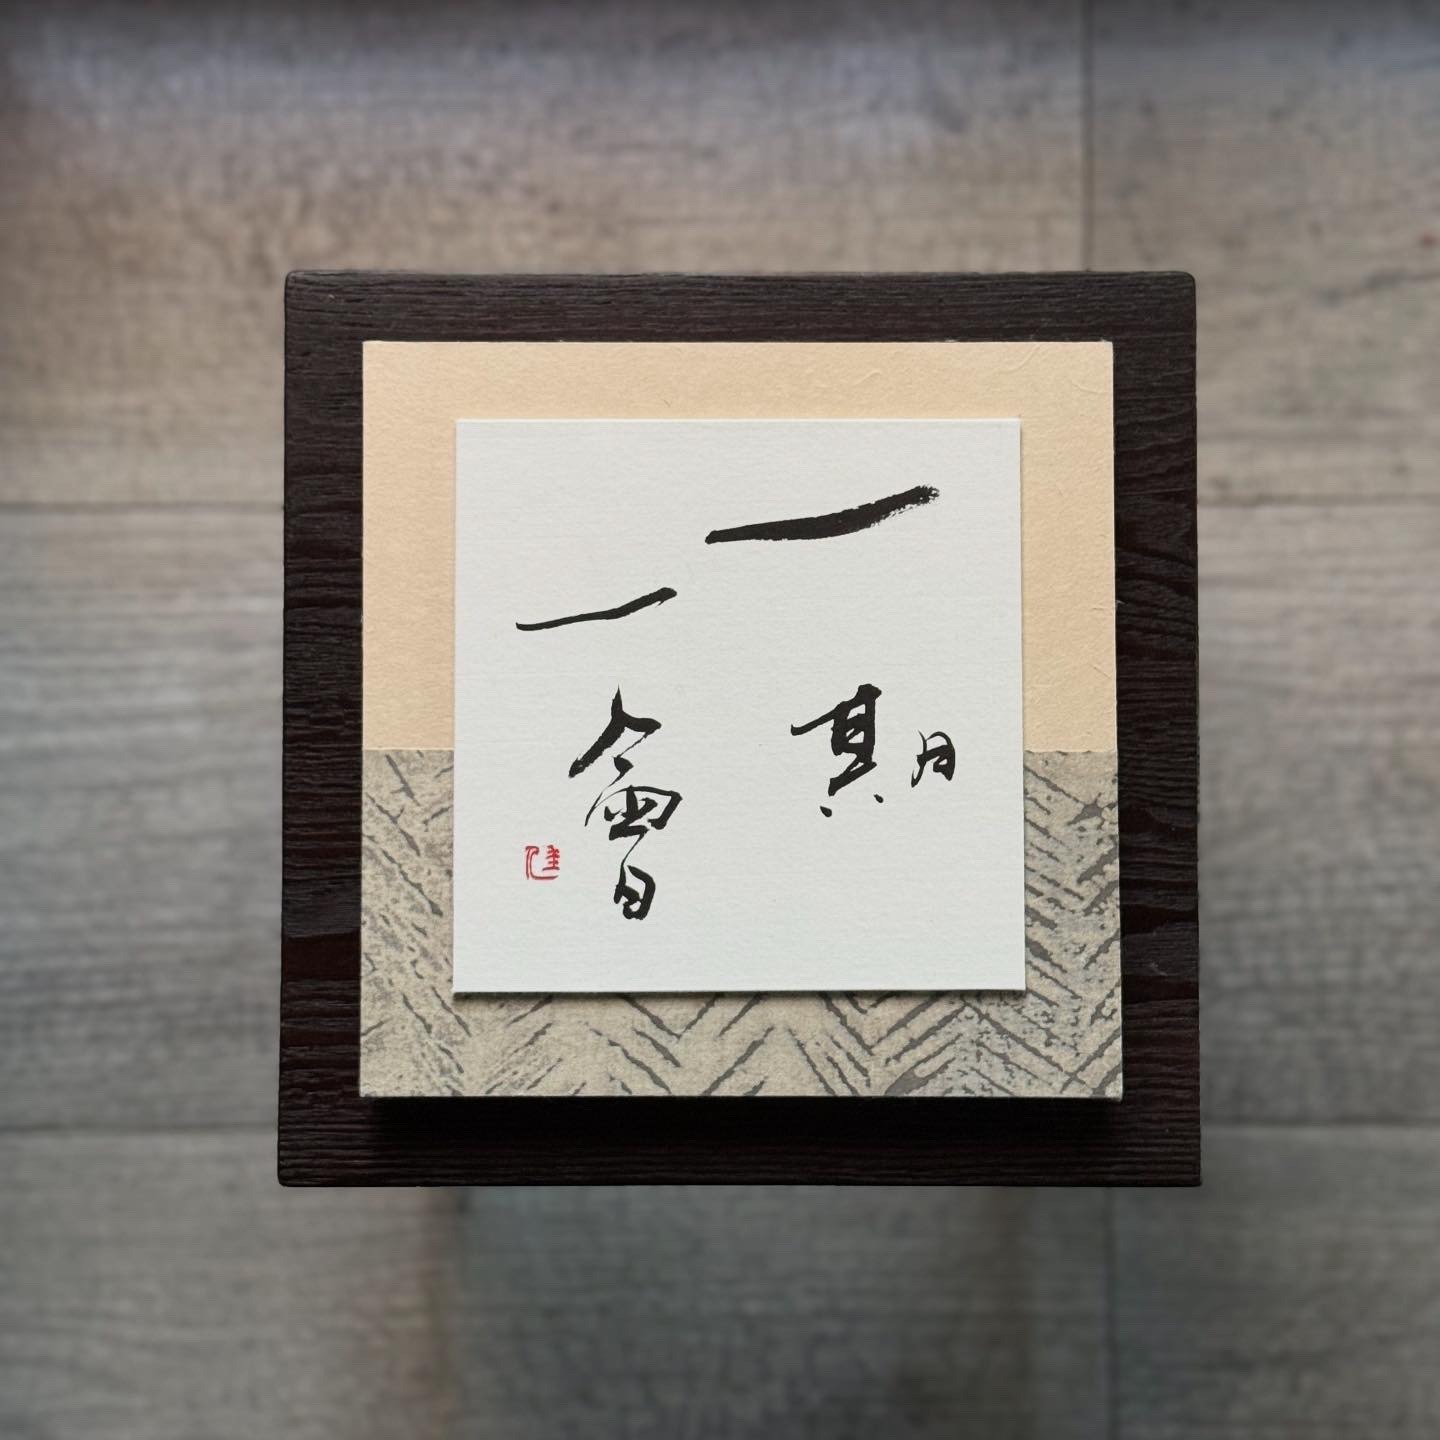 一期
一會
佳